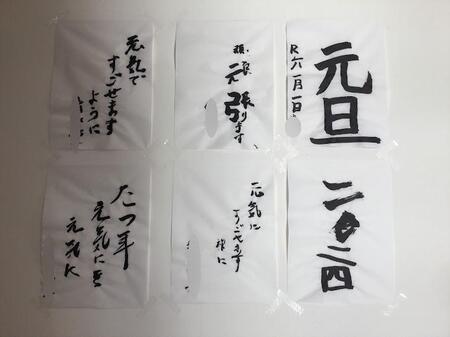 元旦
R六一月一日
張ります
元
元気で
すごせます
ように
二〇二四
元気に
すごせます
様に
たつ年
元気に
元気に